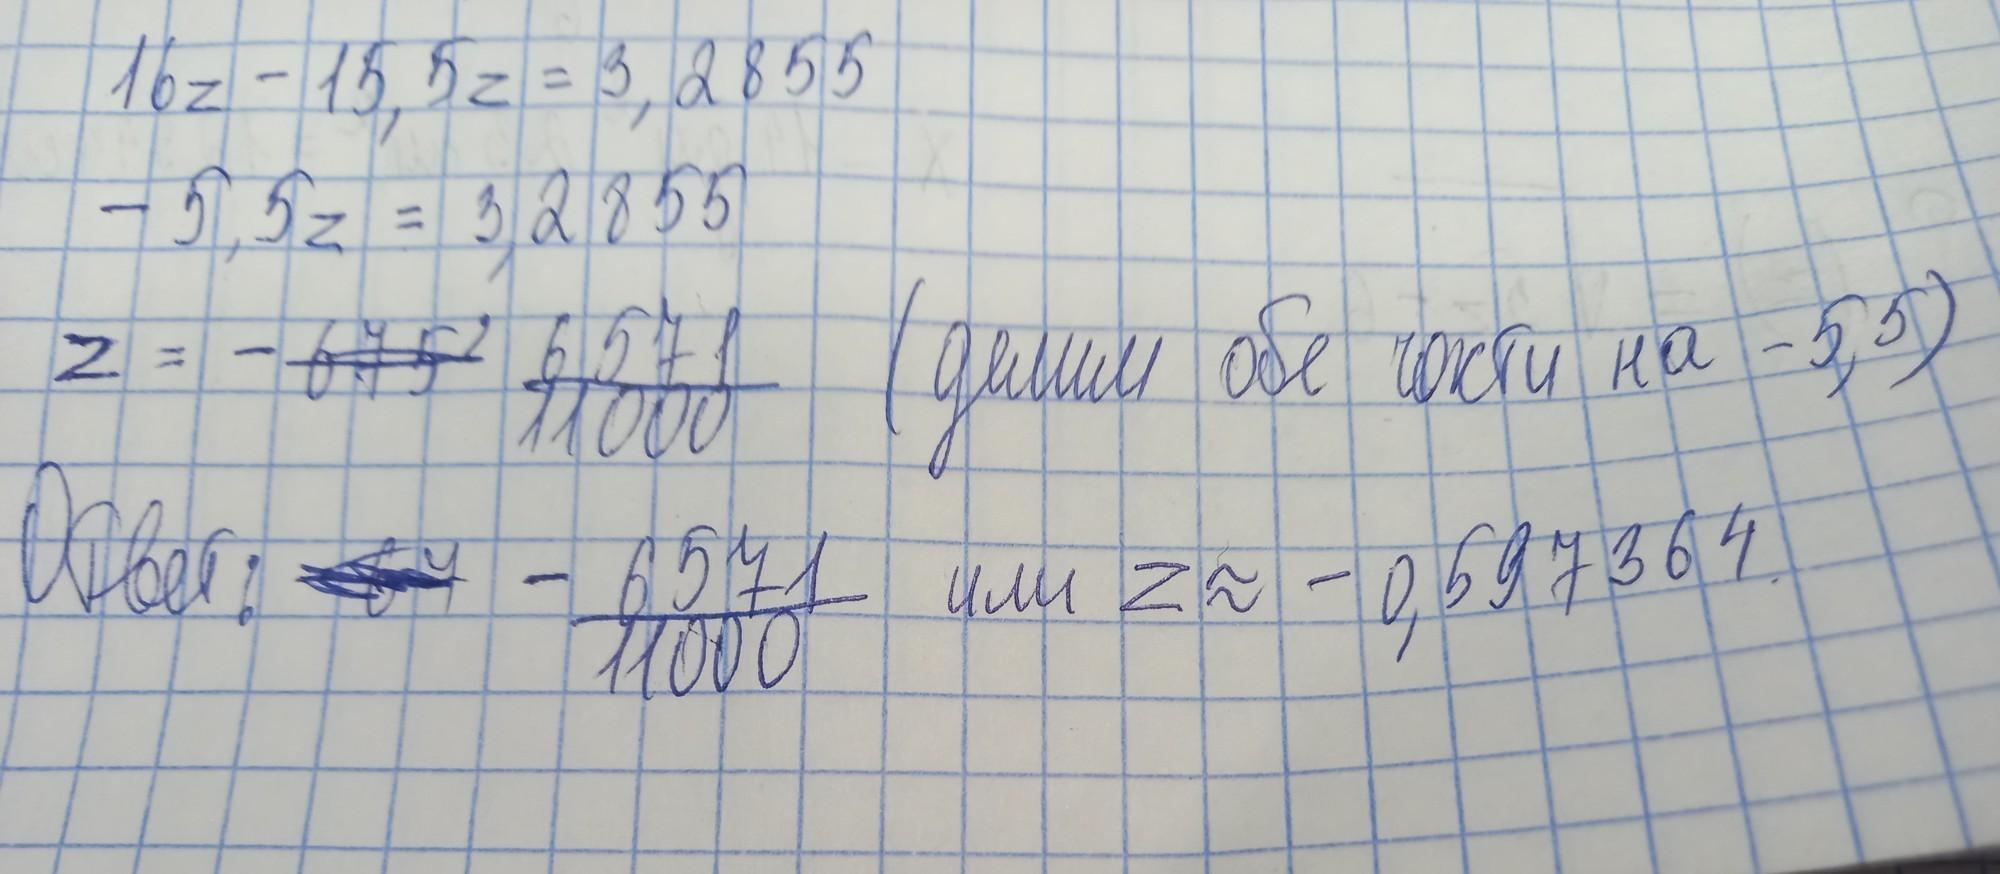 16z - 15,5z = 3,2855
- 5,5z = 3,2855
z = - 6571/11000 (делим обе части на -5,5)
Ответ: - 6571/11000 или z ≈ - 0,597364.